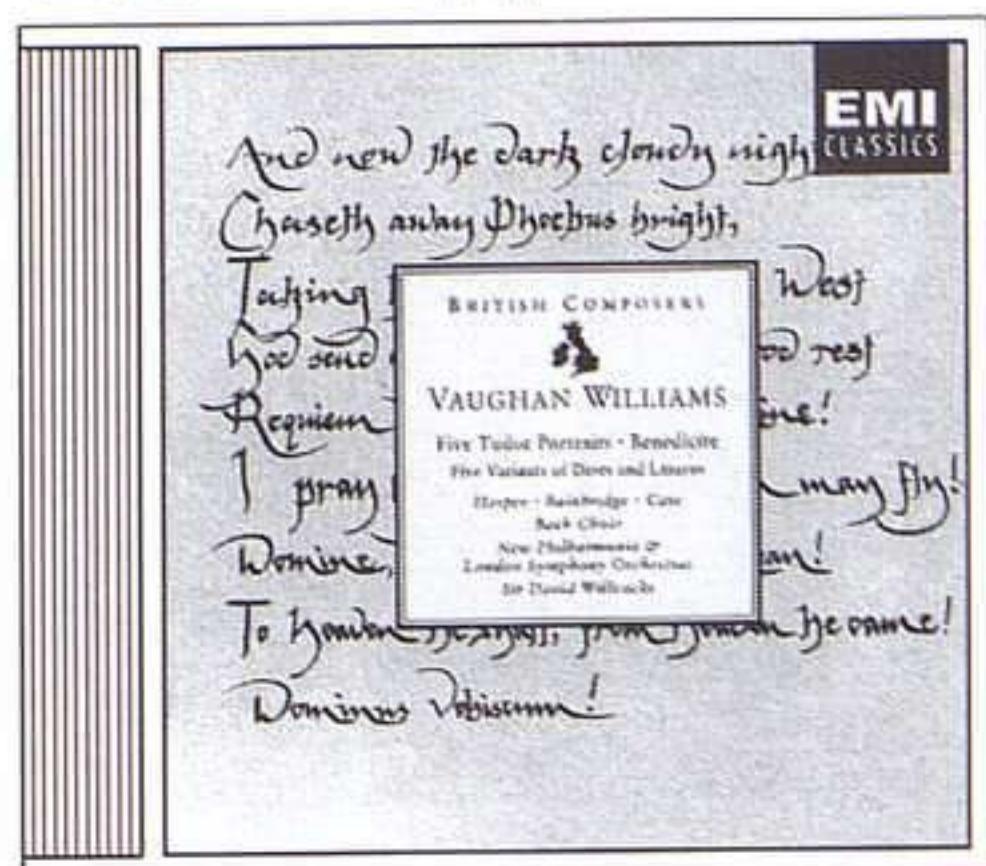 EMI
CLASSICS
And now the dark cloudy nigh
Chaseth away Phoebus bright,
Taking West
God send rest
Requiem
I pray may fly!
Domine,
To heaven he from heaven he came!
Dominus vobiscum!
BRITISH COMPOSERS
VAUGHAN WILLIAMS
Five Tudor Portraits · Benedicite
Five Variants of Dives and Lazarus
Harper · Bainbridge · Case
Bach Choir
New Philharmonia &
London Symphony Orchestras
Sir David Willcocks